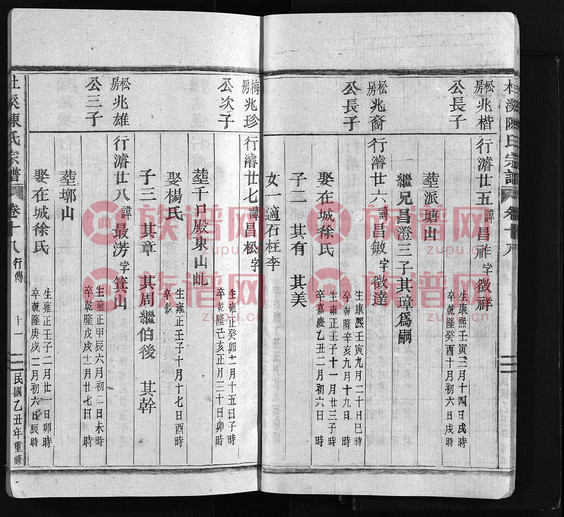 杜溪陳氏宗譜 卷十八
松房 兆楷公長子
行濬廿五 諱昌祚 字徵祥
生康熙壬寅三月十四日戌時
卒乾隆癸酉十月初六日戌時
葬派塘山
繼兄昌澄三子其璋爲嗣
松房 兆裔公長子
行濬廿六 諱昌敏 字徵達
生康熙壬寅九月二十日巳時
卒乾隆辛亥九月十九日時
娶在城徐氏
生雍正壬子十一月廿三日子時
卒嘉慶乙丑二月初六日時
子二 其有 其美
女一適石柱李
梅房 兆珍公次子
行濬廿七 諱昌松 字
生雍正癸卯二月十五日子時
卒乾隆己亥正月三十日卯時
葬千戶殿東山屵
娶楊氏
生雍正壬子十月十七日酉時
卒缺
子三 其章 其周繼伯後 其幹
松房 兆雄公三子
行濬廿八 諱昌芳 字箕山
生雍正甲辰六月初二日未時
卒乾隆戊戌十二月廿七日時
葬塘山
娶在城徐氏
生雍正壬子二月廿一日卯時
卒乾隆庚戌二月初六日辰時
杜溪陳氏宗譜 卷十八 行傳 十一 民國乙丑年重修
族谱网
zupu.cn